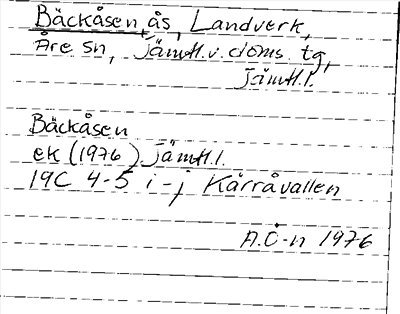 Bäckåsen, ås, Landverk,
Åre sn, Jämtl.v.doms. tg,
Jämtl.l.
Bäckåsen
ek (1976) Jämtl.l.
19C 4-5 i-j Kårråvallen
A.Ö-n 1976